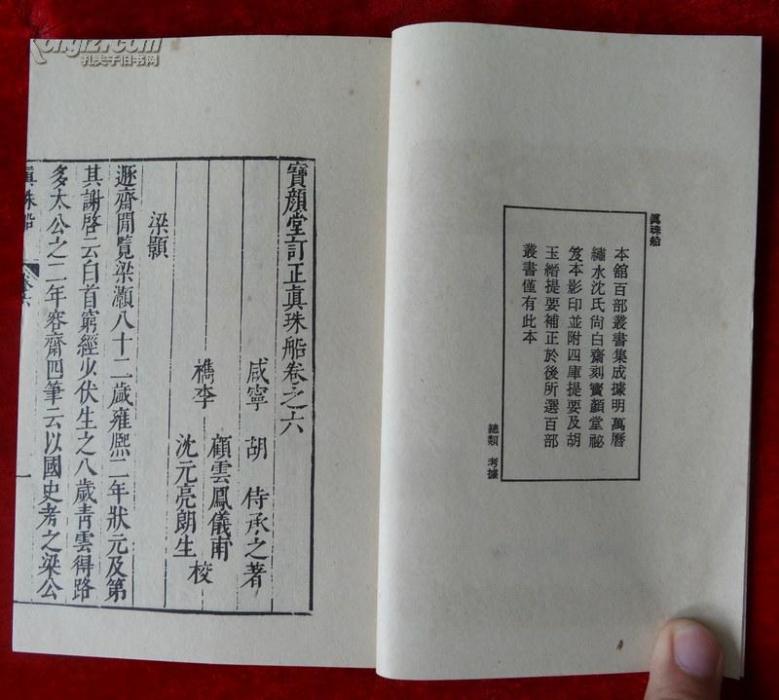 孔夫子旧书网
真珠船
本舘百部叢書集成據明萬曆
繡水沈氏尙白齋刻寶顏堂祕
笈本影印並附四庫提要及胡
玉縉提要補正於後所選百部
叢書僅有此本
總類 考據
寶顏堂訂正真珠船卷之六
咸寧 胡 侍承之著
檇李 顧雲鳳儀甫
沈元亮朗生 校
梁顥
遯齋閒覽梁灝八十二歲雍熙二年狀元及第
其謝啓云白首窮經少伏生之八歲青雲得路
多太公之二年容齋四筆云以國史考之梁公
真珠船
卷六
一